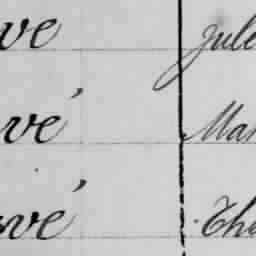 ve Jule
vé Mar
vé The